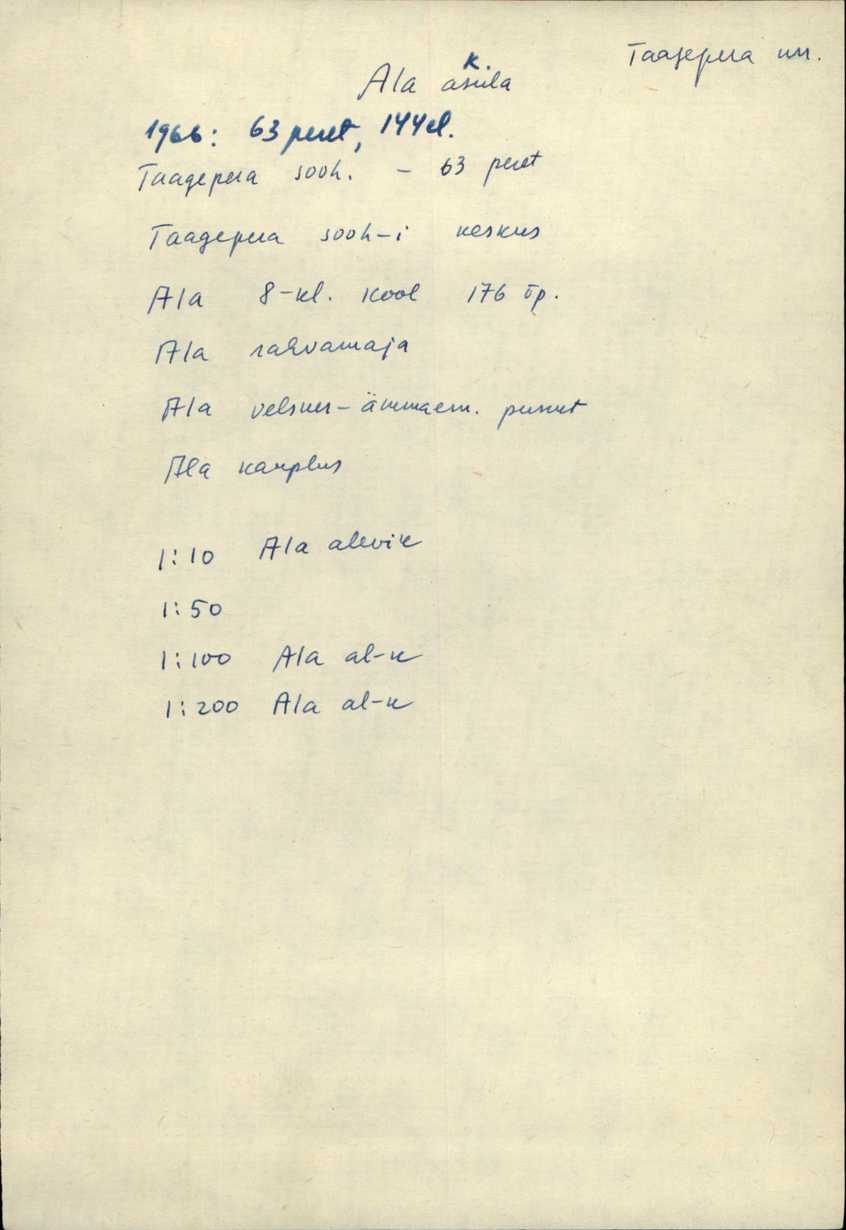 Taagepera kn.
k.
Ala asula
1966: 63 peret, 144 el.
Taagepera sovh. - 63 peret
Taagepera sovh-i keskus
Ala 8-kl. kool 176 õp.
Ala rahvamaja
Ala velsker-ämmaem. punkt
Ala kauplus
1:10 Ala alevik
1:50
1:100 Ala al-k
1:200 Ala al-k